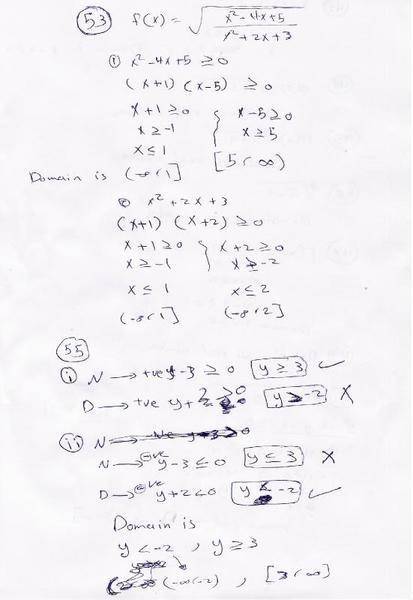 53 f(x) = √(x² - 4x + 5 / x² + 2x + 3)
① x² - 4x + 5 ≥ 0
(x+1) (x-5) ≥ 0
x + 1 ≥ 0 { x - 5 ≥ 0
x ≥ -1 x ≥ 5
x ≤ 1 [5, ∞)
Domain is (-∞, 1]
② x² + 2x + 3
(x+1) (x+2) ≥ 0
x + 1 ≥ 0 { x + 2 ≥ 0
x ≥ -1 x ≥ -2
x ≤ 1 x ≤ 2
(-∞, 1] (-∞, 2]
55
i N → +ve y - 3 ≥ 0 y ≥ 3 ✓
D → +ve y + 2 > 0 y > -2 X
ii N → -ve y - 3 ≥ 0
N → -ve y - 3 ≤ 0 y ≤ 3 X
D → -ve y + 2 < 0 y < -2 ✓
Domain is
y < -2 , y ≥ 3
(-∞, -2) , [3, ∞]